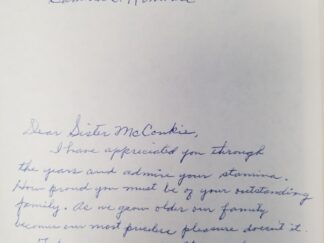 Dear Sister McConkie,
I have appreciated you through
the years and admire your stamina.
How proud you must be of your outstanding
family. As we grow older our family
becomes our most precious pleasure doesn't it.